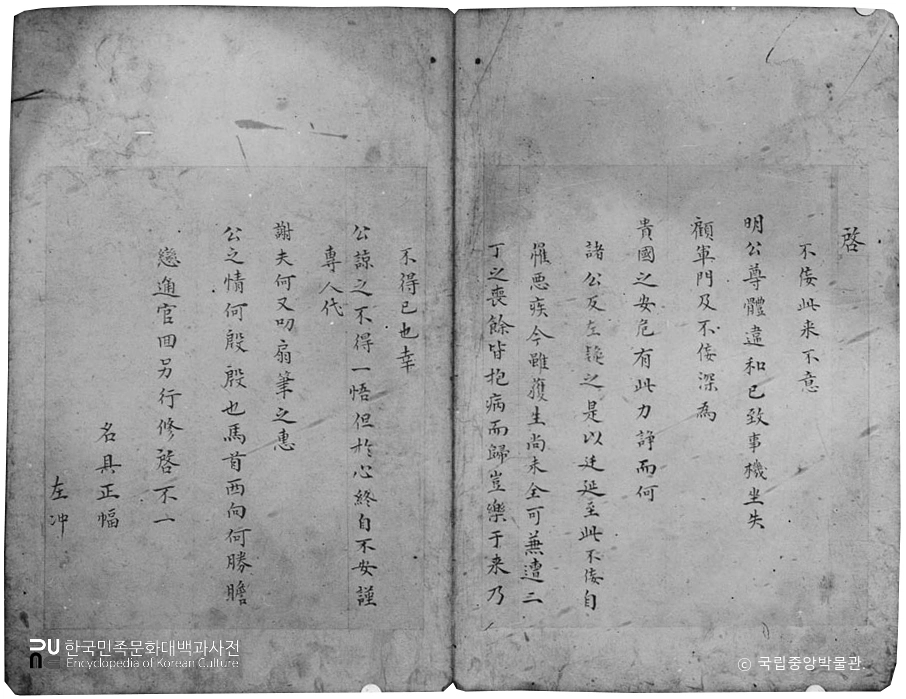 啓
不佞此来不意
明公尊體違和已致事機坐失
顧軍門及不佞深為
貴國之安危有此力諍而何
諸公反左難之是以迁延至此不佞自
罹悪疾今雖獲生尚未全可蕪遭二
丁之喪餘皆抱病而歸豈樂于来乃
不得已也幸
公諒之不得一悟但扵心終自不安謹
專人代
謝夫何又叨扇筆之惠
公之情何殷殷也馬首西向何勝瞻
戀通官回另行修啓不一
名具正幅
左冲
한국민족문화대백과사전
Encyclopedia of Korean Culture
© 국립중앙박물관